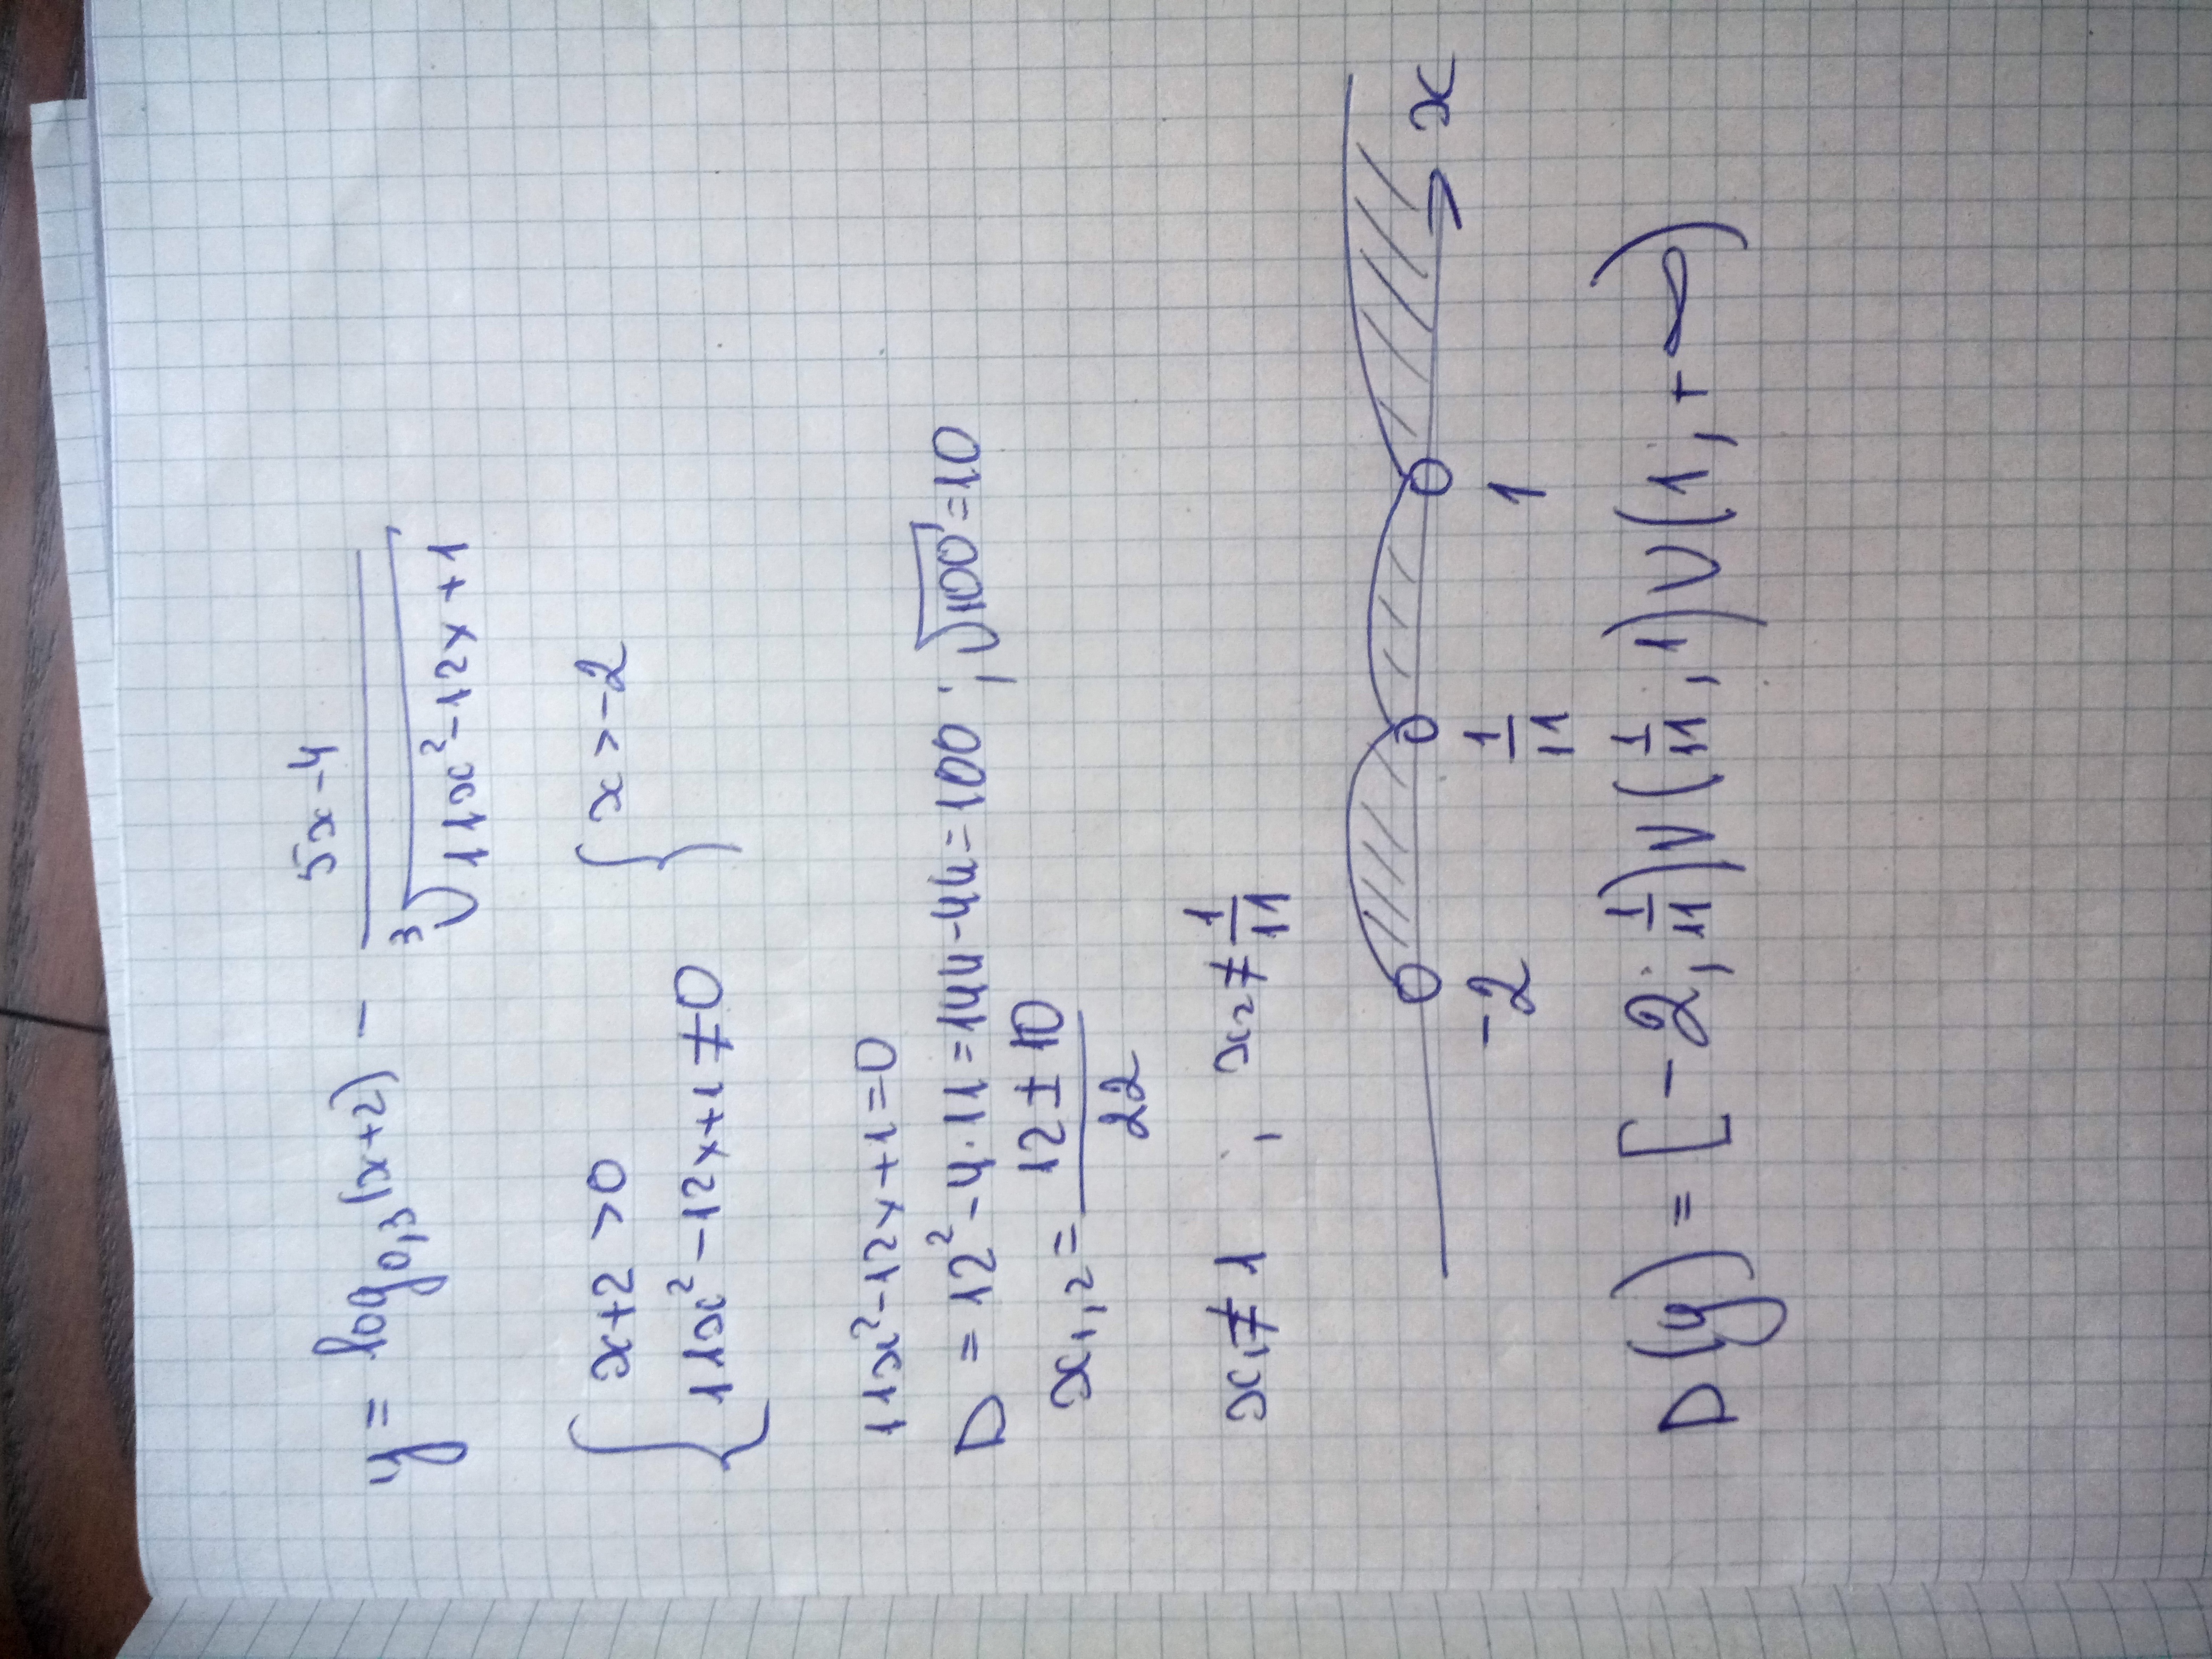 y = log₀,₃(x+2) - (5x-4)/∛(11x²-12x+1)
{ x+2 >0 { x > -2
11x²-12x+1≠0
11x²-12x+1=0
D = 12²-4·11=144-44=100 ; √100=10
x₁,₂ = (12 ± 10)/22
x₁≠1 ; x₂≠1/11
-2 1/11 1 x
D(y) = [-2; 1/11)∪(1/11; 1)∪(1; +∞)